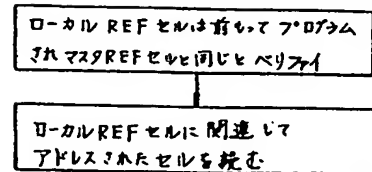 ローカル REF セルは前もって プログラム
され マスタREFセルと同じと ベリファイ
ローカルREFセルに 関連して
アドレスされたセルを読む